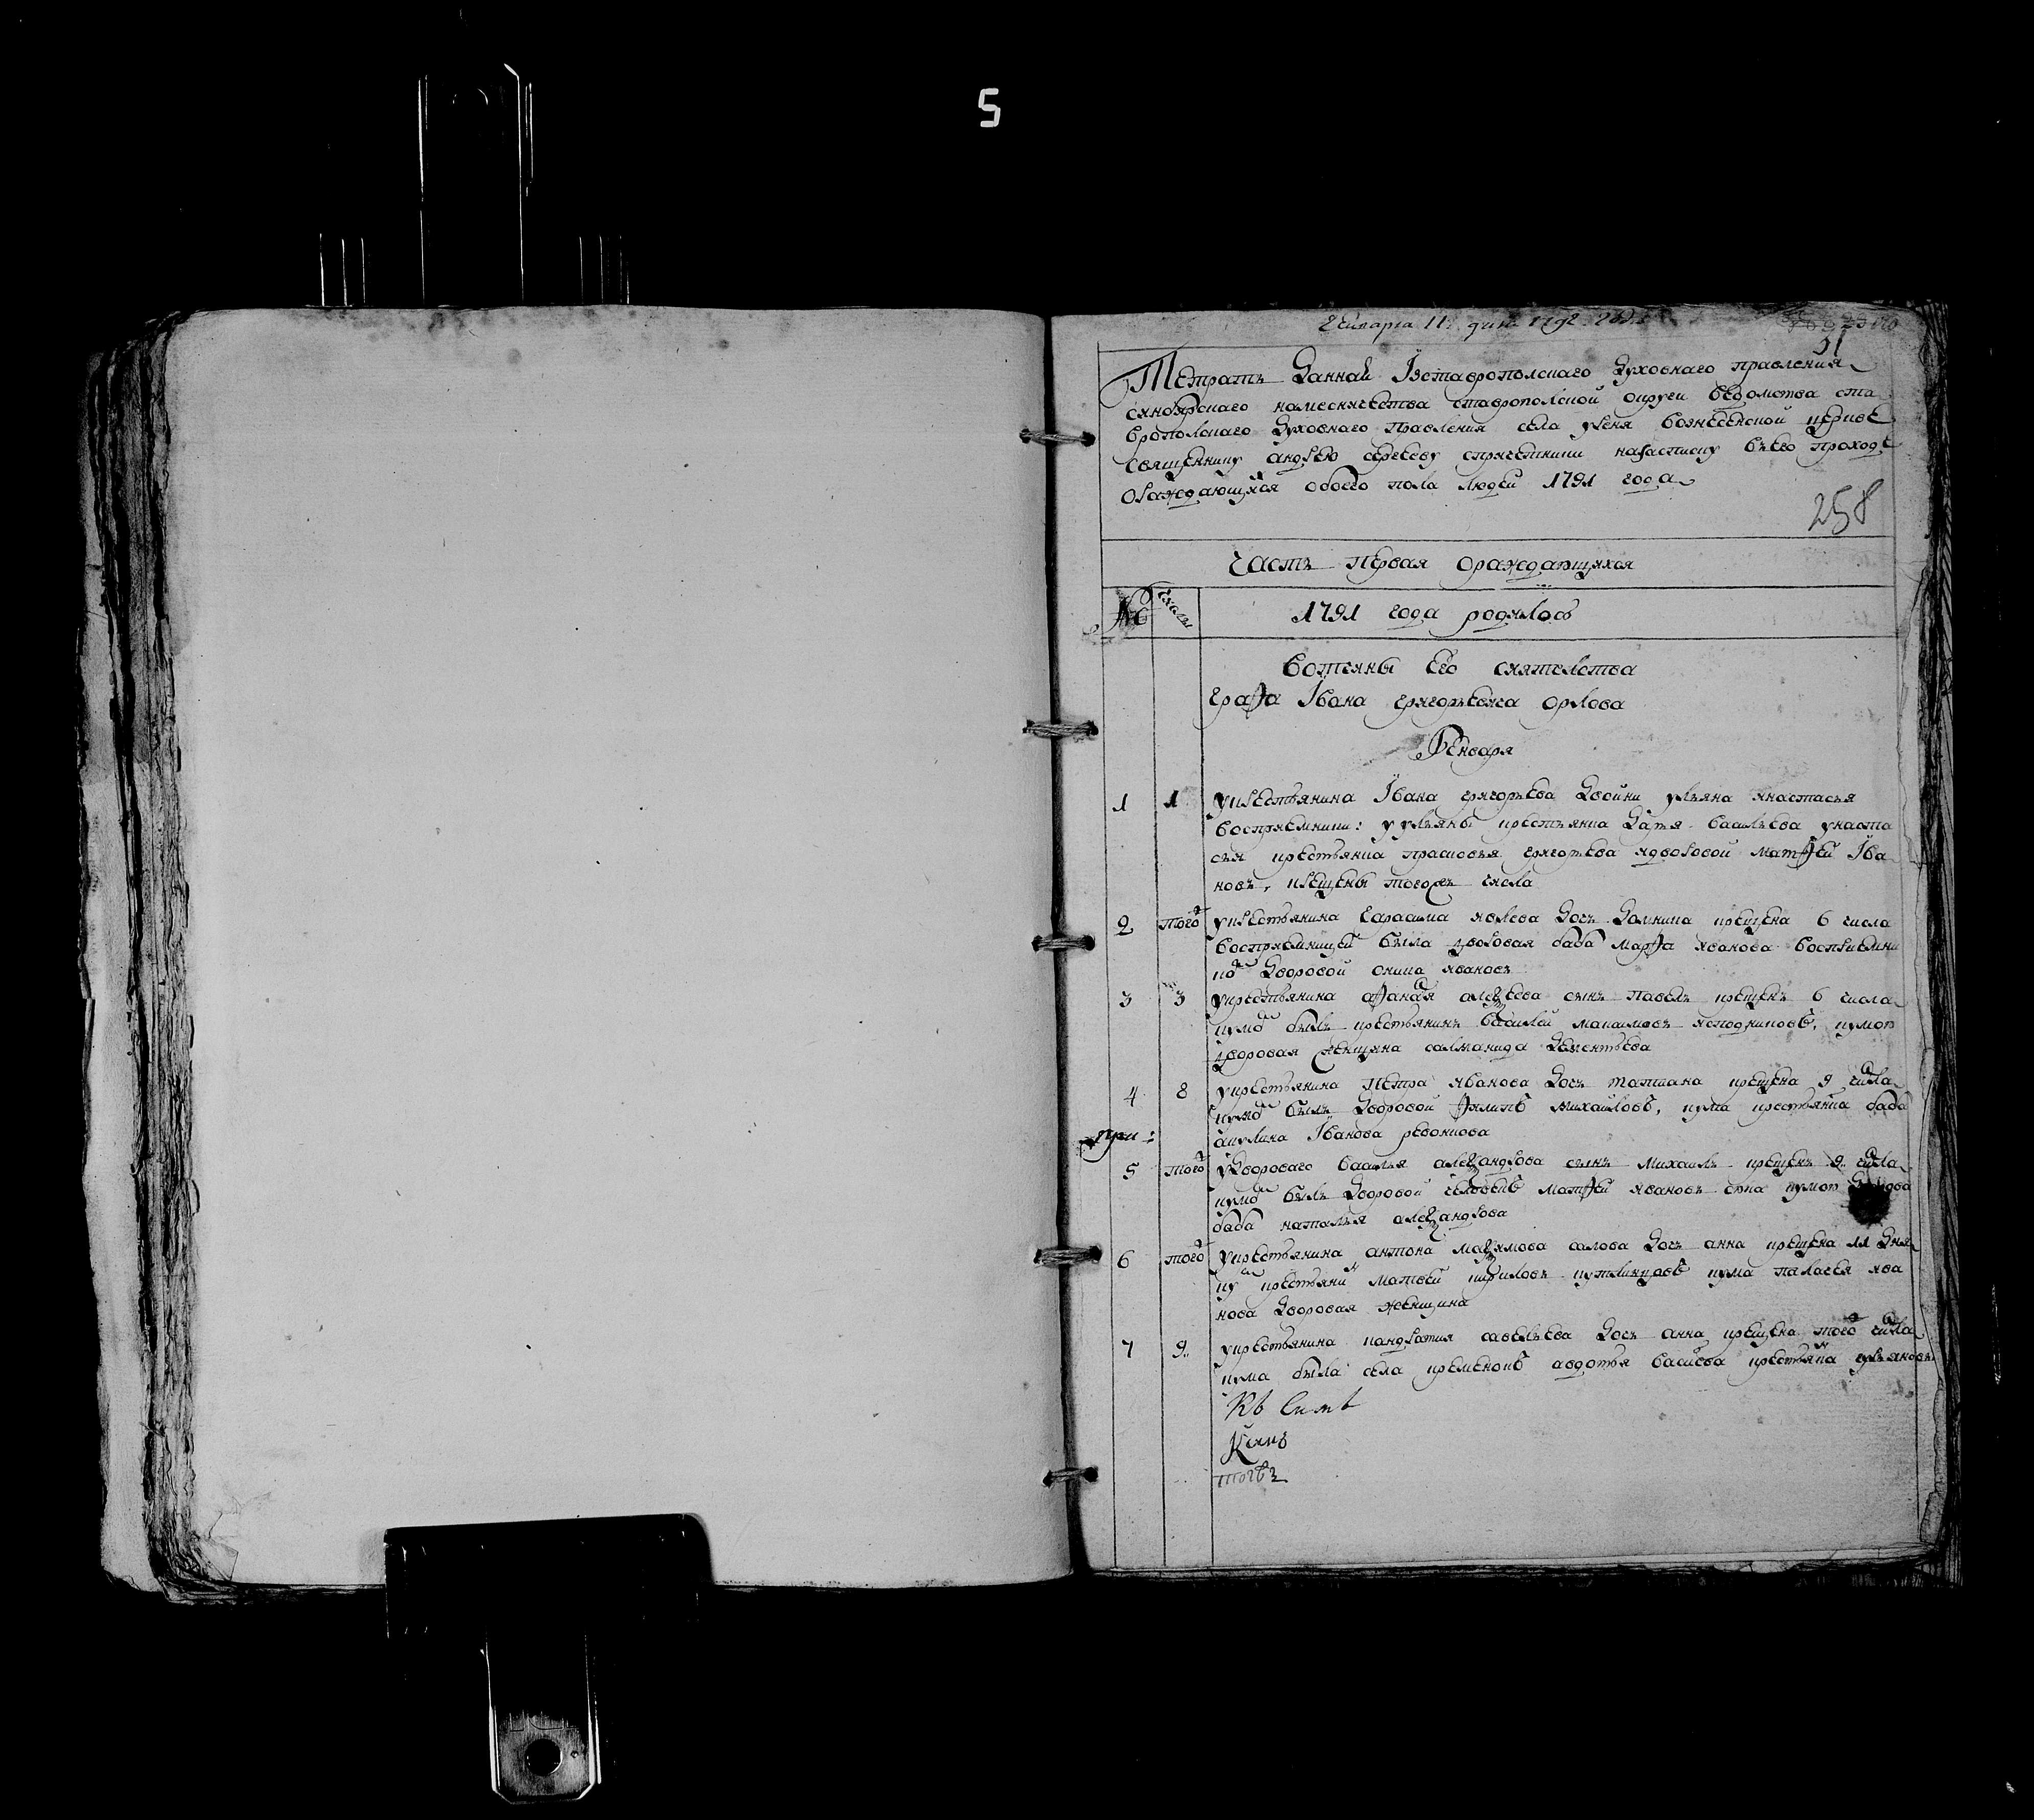 5
Генваря 11: дня 1792 года
51
Тетрать даннай Їзставрополскаго духовнаго правления
синбирскаго намесничества ставрополской округи ведомства ста
врополскаго духовнаго правления села увеня вознесенской церкве
священнику андрею сергееву спричетники назаписку въего приходе
ораждающихся обоего пола людей 1791 года
258
Часть первая ораждающихся
№ числы 1791 года родилось
вотчины его сиятелства
графа Ївана григорьевича орлова
Генваря
1 1 укрестьянина Ївана григорьева двойни ульяна инастасья
восприемники: уульяны крестьянка дарья васильева унаста
сьи крестьянка прасковья григорьева идворовой матфей Їва
новъ, крещены тогожъ числа
2 того укрестьянина гарасима дочь домника крещена 6 числа
восприемницей была дворовая баба марфа иванова восприемни
ко дворовой оника ивановъ
3 3 укрестьянина афанася алеѯеева сынъ павелъ крещенъ 6 числа
кумо былъ крестьянинъ василей макаимовъ кумою
дворовая женщина саламанида дементьева
4 8 укрестьянина петра иванова дочь татиана крещена 9 числа
кумо былъ дворовой филипъ михайловъ, кума крестьянка баба
акулина Їванова ревонкова
при:
5 того удвороваго василья алеѯандрова сынъ михаилъ крещенъ 9 числа
кумо былъ дворовой человекъ матфей ивановъ кумою
баба наталья алеѯандрова
6 того укрестьянина антона маѯимова салова дочь анна крещена 11 дня
ку крестьяни матвей кириловъ кума пелагея ива
нова дворовая женщина
7 9 укрестьянина панкратия савельева дочь анна крещена того числа
кума была села кременокъ авдотья крестьянка
Къ симъ
Книг